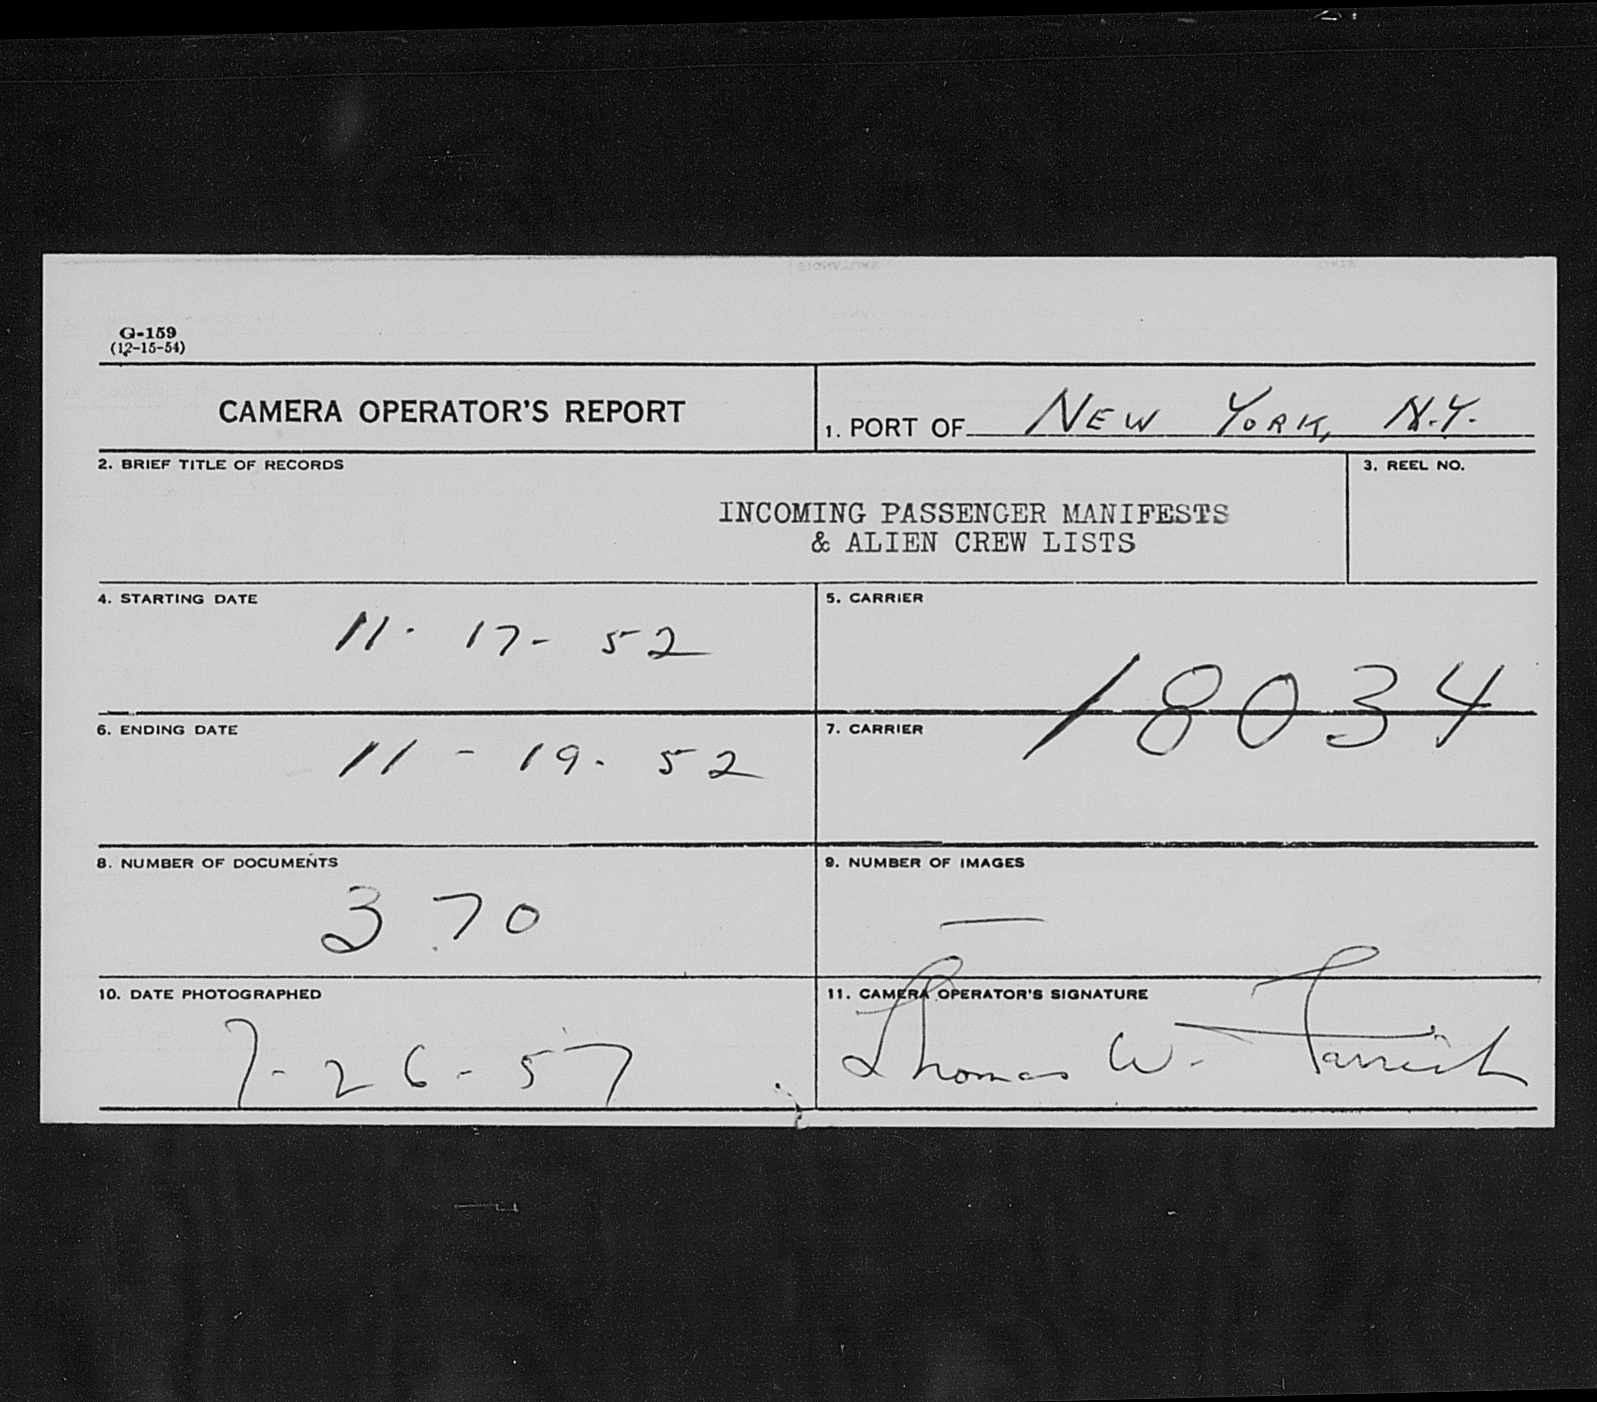 G-159
(12-15-54)
CAMERA OPERATOR'S REPORT
1. PORT OF NEW YORK, N.Y.
2. BRIEF TITLE OF RECORDS
INCOMING PASSENGER MANIFESTS
& ALIEN CREW LISTS
3. REEL NO.
4. STARTING DATE
11-17-52
5. CARRIER
18034
6. ENDING DATE
11-19-52
7. CARRIER
8. NUMBER OF DOCUMENTS
370
9. NUMBER OF IMAGES
—
10. DATE PHOTOGRAPHED
7-26-57
11. CAMERA OPERATOR'S SIGNATURE
Thomas W.